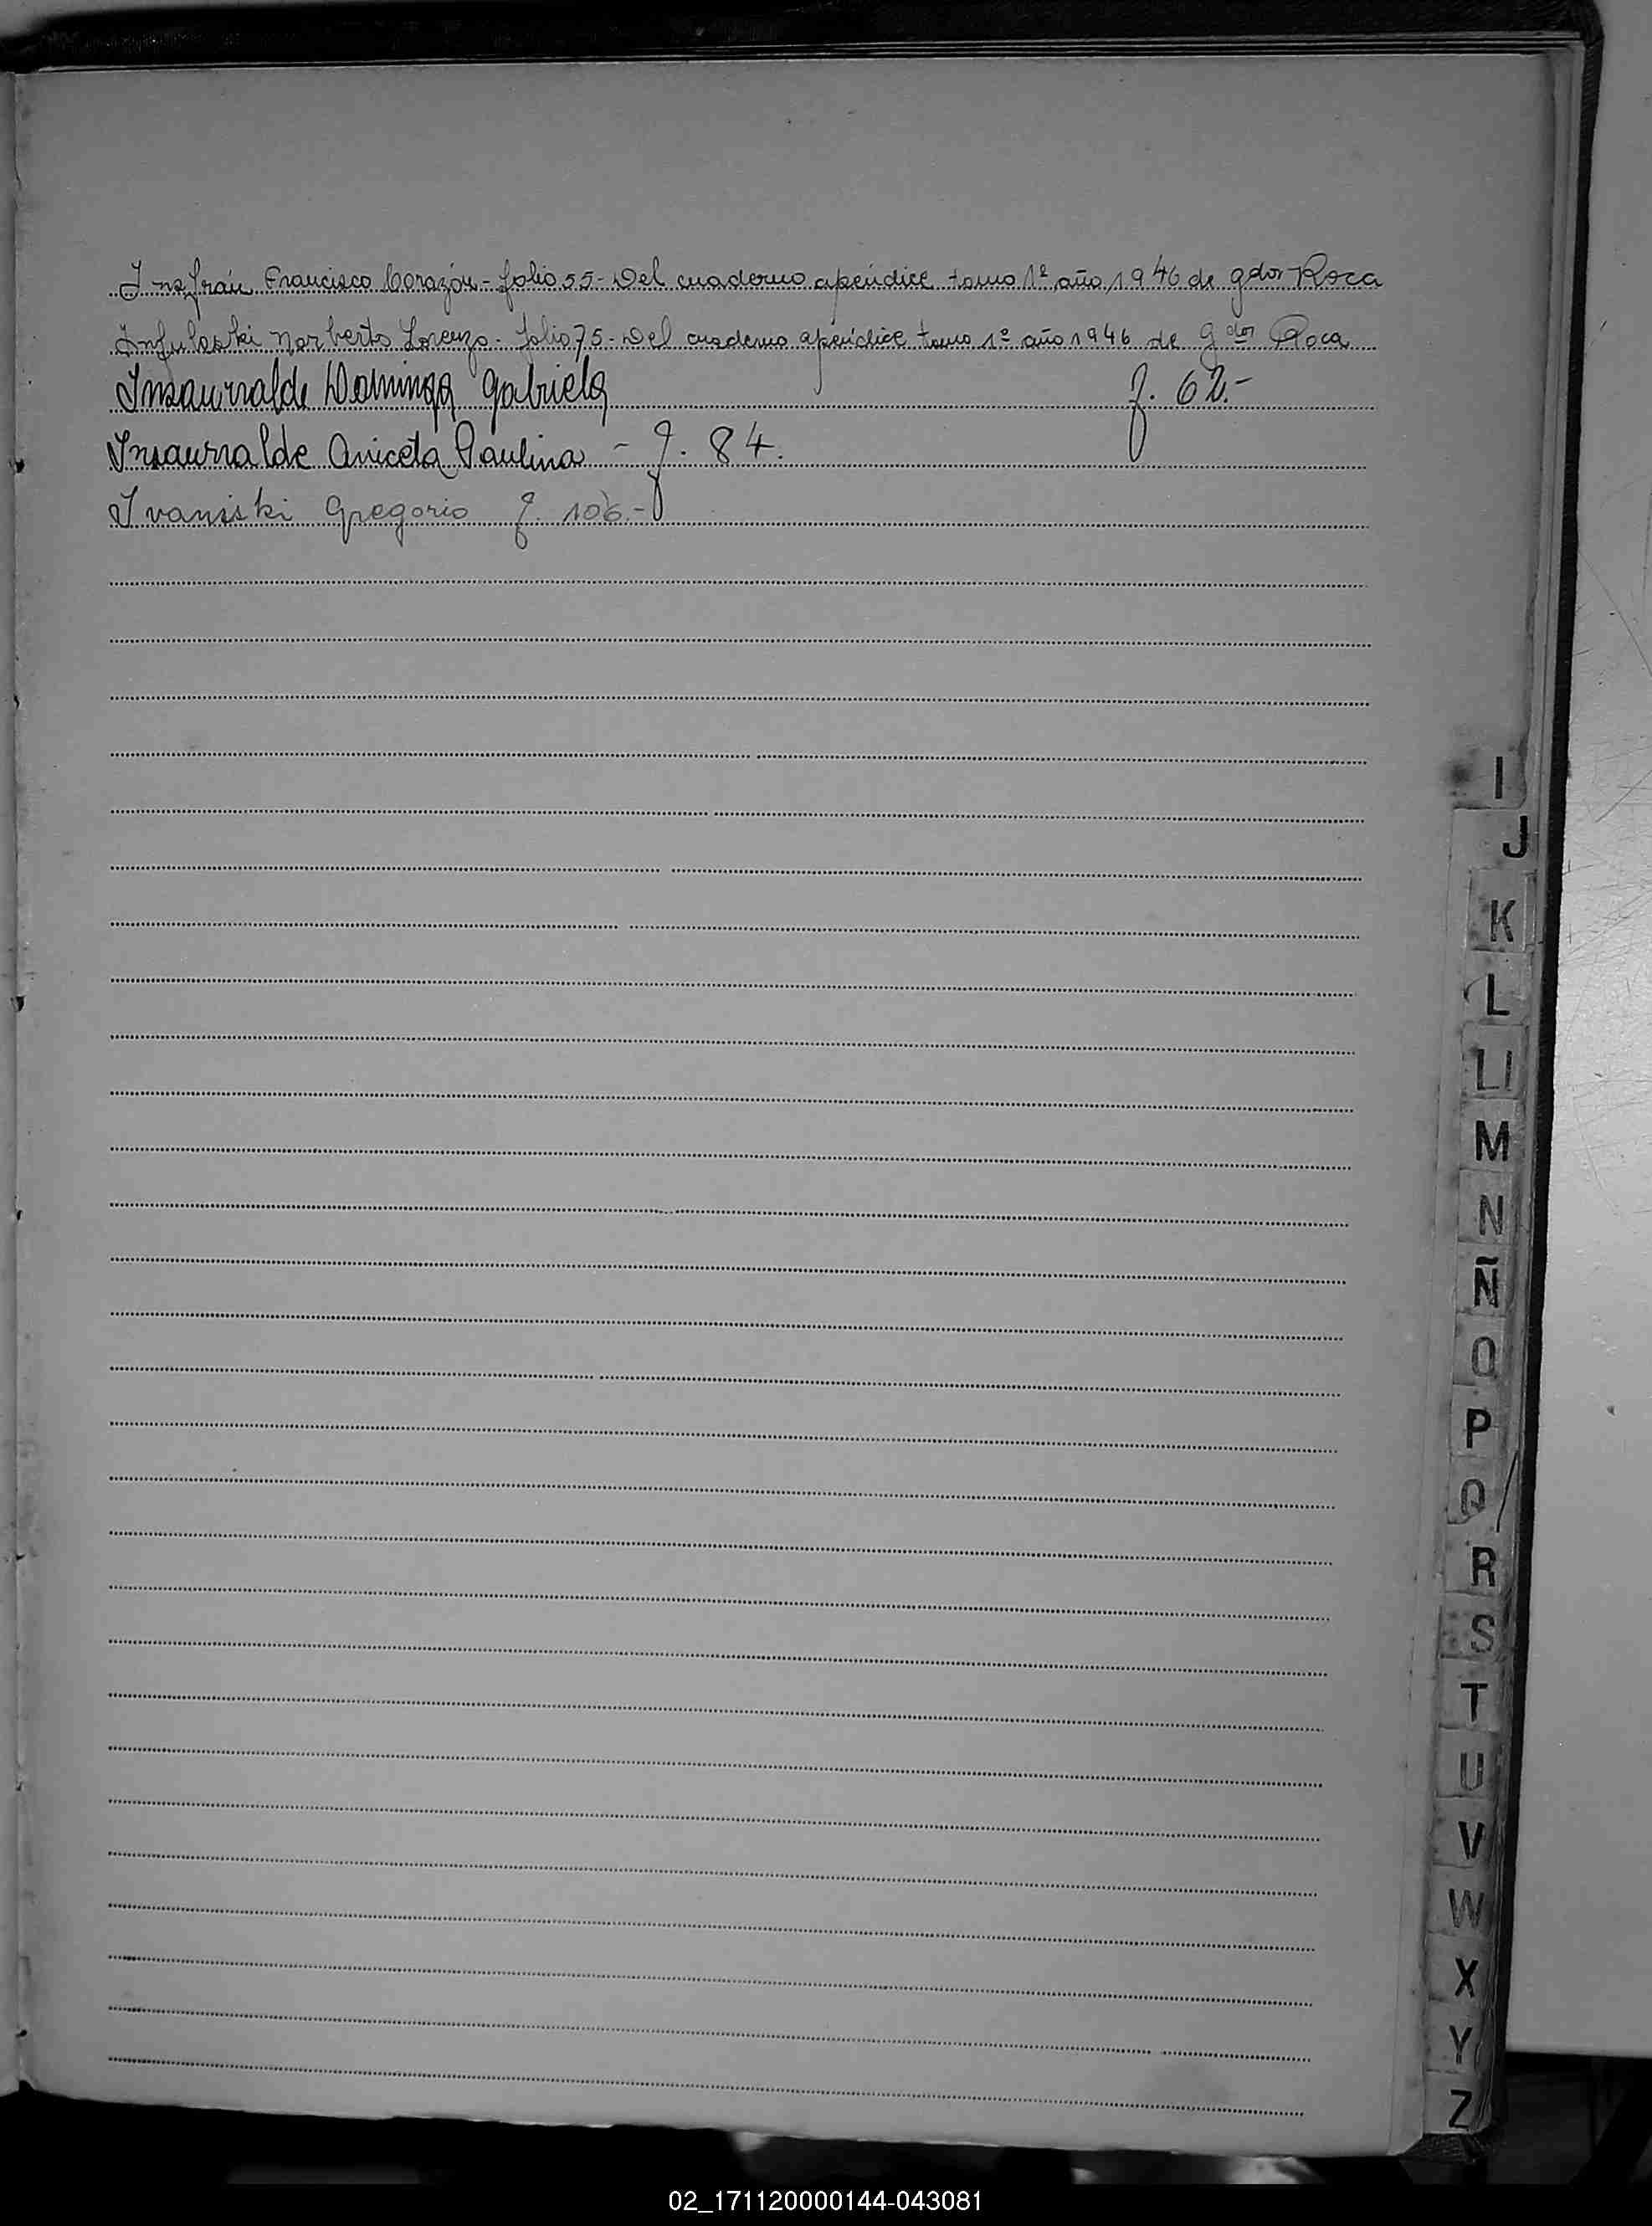 Insfrán Francisco Corazón - folio 55 - Del cuaderno apéndice tomo 1º año 1946 de gdor Roca
Norberto Lorenzo - folio 75 - Del cuaderno apéndice tomo 1º año 1946 de Gdor Roca
Insaurralde Dominga Gabriela f. 62.-
Insaurralde Aniceta Paulina - f. 84.
Ivaniski Gregorio f. 106.-
I
J
K
L
Ll
M
N
Ñ
O
P
Q
R
S
T
U
V
W
X
Y
Z
02_171120000144-043081